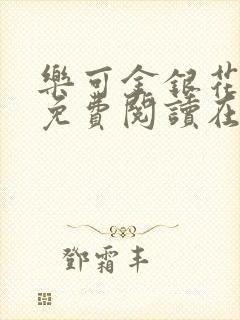 樂可金銀花
免費閱讀在
鄧霜丰